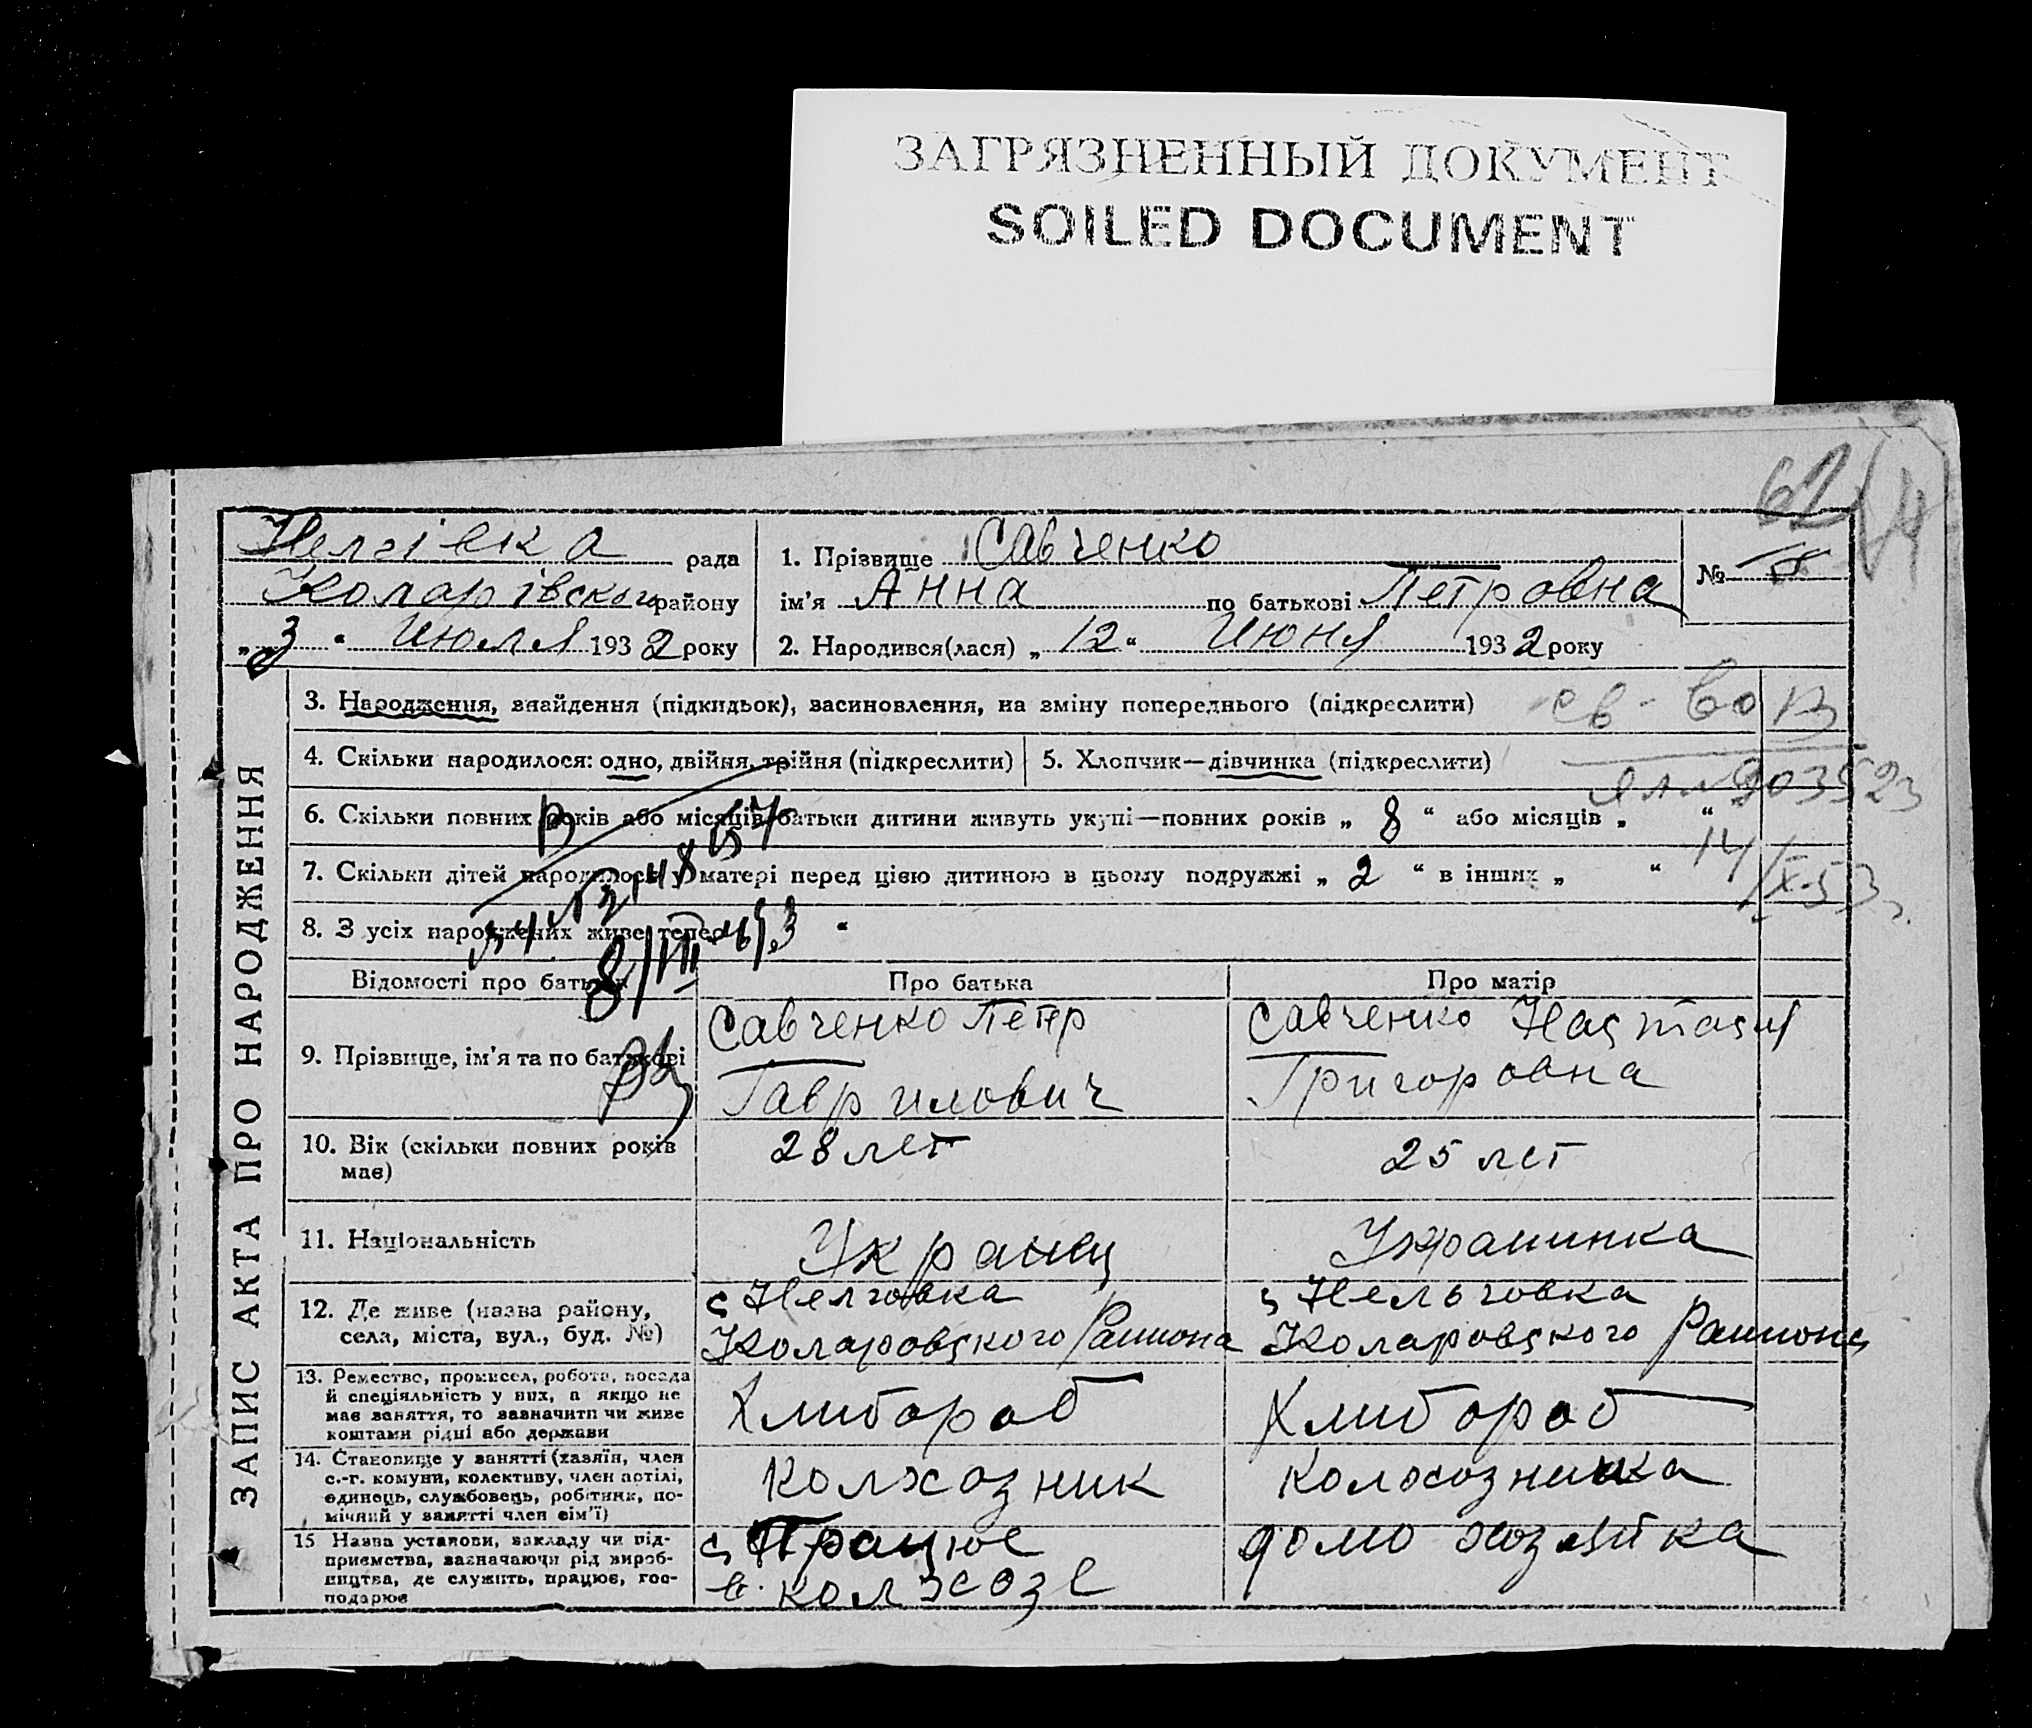 ЗАГРЯЗНЕННЫЙ ДОКУМЕНТ
SOILED DOCUMENT
62
Нелгівка рада
Коларівского району
„3“ Июля 1932 року
1. Прізвище Савченко
ім'я Анна по батькові Петровна
2. Народився(лася) „12“ Июня 1932 року
№
ЗАПИС АКТА ПРО НАРОДЖЕННЯ
3. Народження, знайдення (підкидьок), засиновлення, на зміну попереднього (підкреслити)
св-во
4. Скільки народилося: одно, двійня, трійня (підкреслити)
5. Хлопчик—дівчинка (підкреслити)
903523
6. Скільки повних років або місяців батьки дитини живуть укупі—повних років „8“ або місяців „ “
14/IX-53 г.
7. Скільки дітей народилось у матері перед цією дитиною в цьому подружжі „2“ в інших „ “
8. З усіх народжених живе тепер “
8/VII
Відомості про батьків
Про батька
Про матір
9. Прізвище, ім'я та по батькові
Савченко Петр
Гаврилович
Савченко Настасия
Григоровна
10. Вік (скільки повних років
має)
28 лет
25 лет
11. Національність
Украиец
Украиинка
12. Де живе (назва району,
села, міста, вул., буд. №)
с Нелговка
Коларовского Раиона
с Нельговка
Коларовского Раиона
13. Ремество, промисел, робота, посада
й спеціяльність у них, а якщо не
має заняття, то зазначити чи живе
коштами рідні або держави
Хлибороб
Хлибороб
14. Становище у занятті (хазяїн, член
с.-г. комуни, колективу, член артілі,
одинець, службовець, робітник, по-
мічний у занятті член сім'ї)
Колхозник
Колхозника
15 Назва установи, закладу чи під-
приємства, зазначаючи рід вироб-
ництва, де служить, працює, гос-
подарює
Працює
в. колхозе
домохозяйка